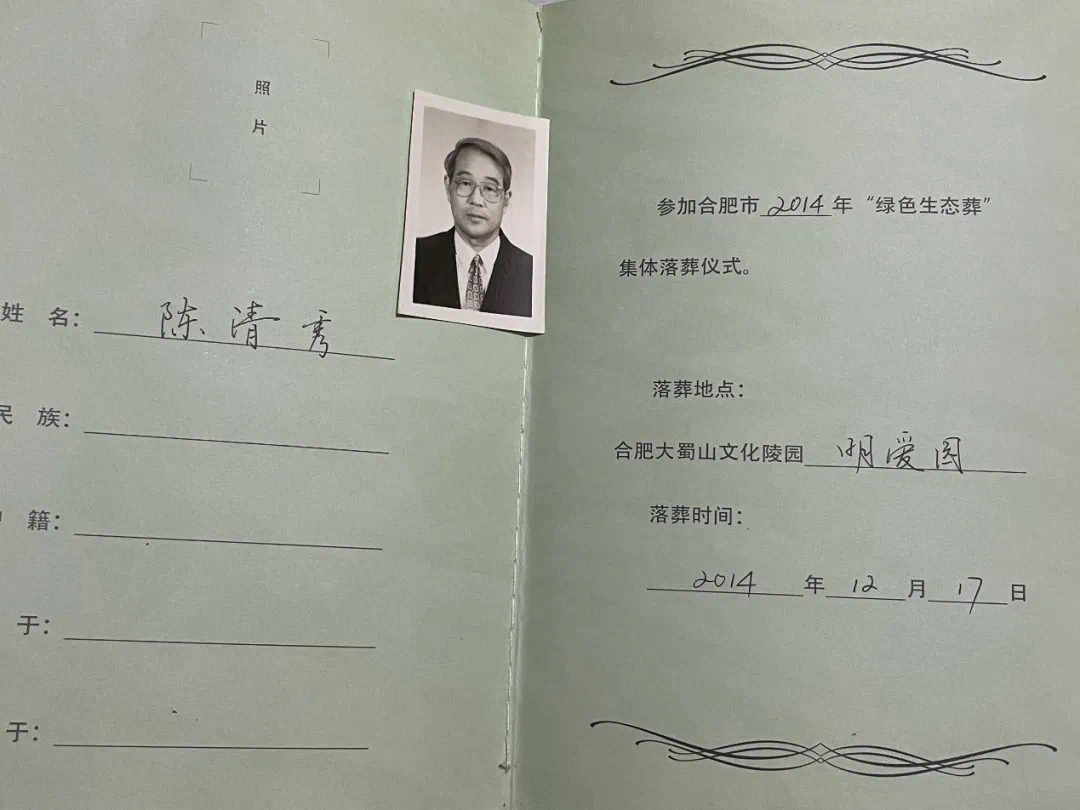 照
片
姓 名：陈清秀
民 族：
籍：
于：
于：
参加合肥市2014年“绿色生态葬”
集体落葬仪式。
落葬地点：
合肥大蜀山文化陵园明爱园
落葬时间：
2014年12月17日